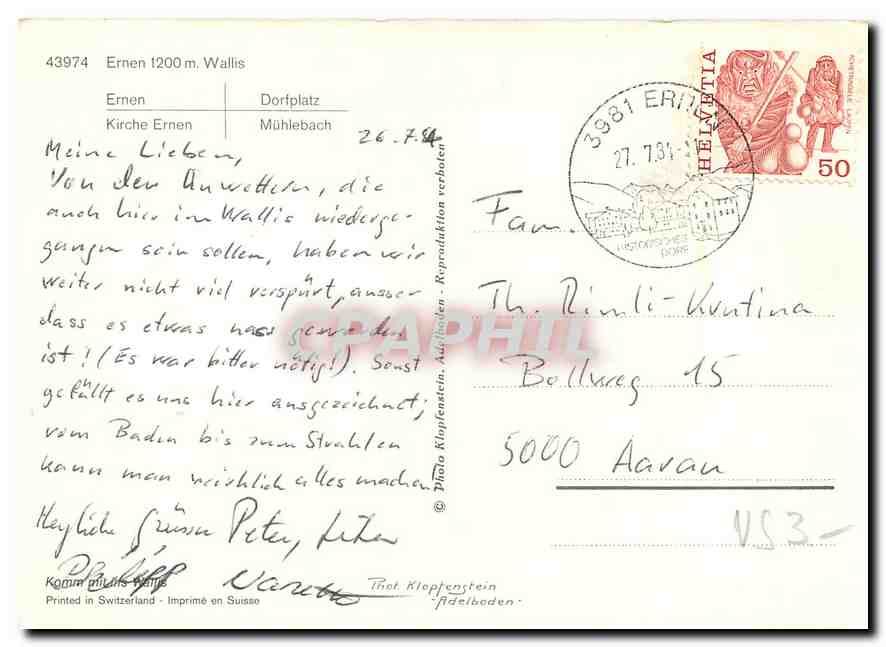 43974 Ernen 1200 m. Wallis
Ernen Dorfplatz
Kirche Ernen Mühlebach
26.7.84
Meine Lieben,
Von den Unwettern, die
auch hier im Wallis niederge-
gangen sein sollen, haben wir
weiter nicht viel verspürt, ausser
dass es etwas nass geworden
ist! (Es war bitter nötig!). Sonst
gefällt es uns hier ausgezeichnet;
vom Baden bis zum Strahlen
kann man wirklich alles machen!
Herzliche Grüsse Peter,
Philipp
Komm mit ins Wallis
Printed in Switzerland - Imprimé en Suisse
Phot. Klopfenstein
-Adelboden-
© Photo Klopfenstein, Adelboden - Reproduktion verboten
3981 ERNEN
27.7.84
HELVETIA
50
Fam.
Th. Rimli-
Bollweg 15
5000 Aarau
VS 3-
CPAPHIL